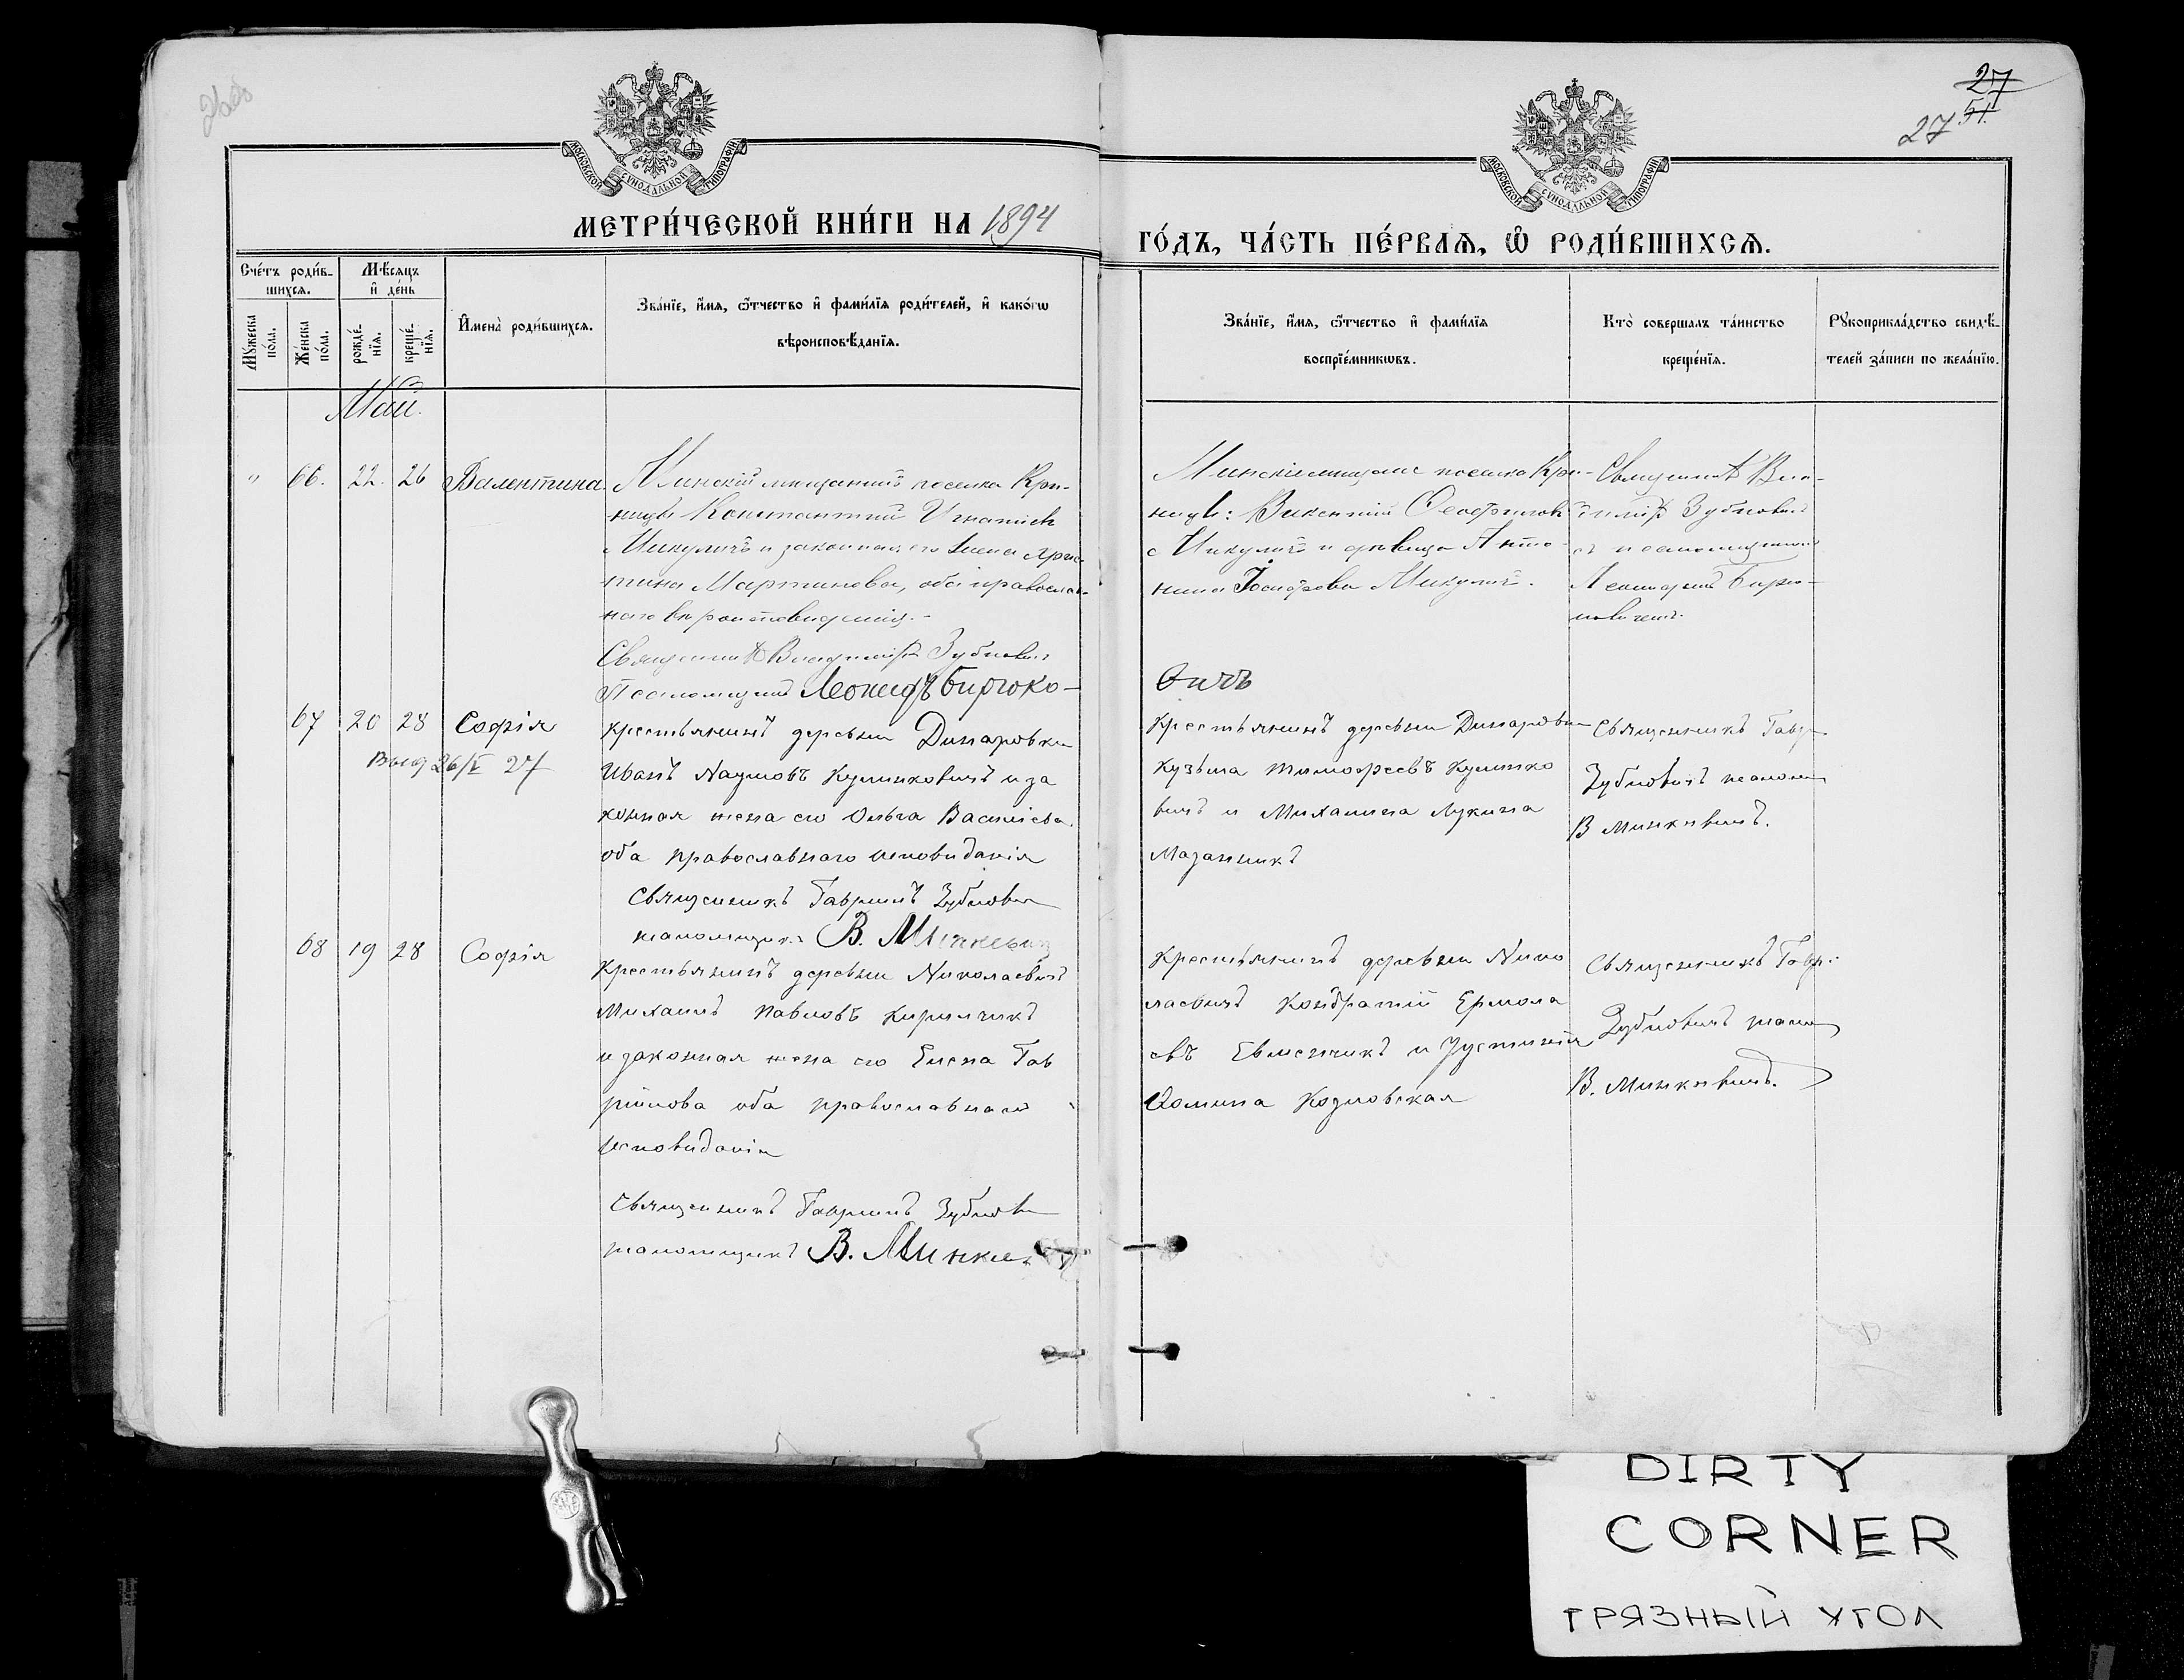 27
51.
27
МОСКОВСКОЙ СѴНОДАЛЬНОЙ ТИПОГРАФІИ
МОСКОВСКОЙ СѴНОДАЛЬНОЙ ТИПОГРАФІИ
МЕТРИ́ЧЕСКОЙ КНИ́ГИ НА 1894
ГО́ДЪ, ЧА́СТЬ ПЕ́РВАѦ, Ѡ҆ РОДИ́ВШИХСѦ.
Сче́тъ роди́в-
шихсѧ.
Мꙋ́жеска
по́ла.
Же́нска
по́ла.
Мѣ́сѧцъ
и҆ де́нь
рожде́-
нїѧ.
креще́-
нїѧ.
И҆мена̀ роди́вшихсѧ.
Зва́нїе, и҆́мѧ, ѻ҆́тчество и҆ фами́лїѧ роди́телей, и҆ како́гѡ
вѣроисповѣ́данїѧ.
Зва́нїе, и҆́мѧ, ѻ҆́тчество и҆ фами́лїѧ
воспрїе́мникѡвъ.
Кто̀ соверша́лъ та́инство
креще́нїѧ.
Рꙋкоприкла́дство свидѣ́-
телей за́писи по жела́нїю.
Май.
" 66. 22. 26 Валентина.
Минскій мѣщанинъ поселка Кри-
ницы Константинъ Игнатіевъ
Микуличъ и законная его жена Хрис-
тина Мартинова, оба православ-
наго вѣроисповѣданія.-
Священникъ Владиміръ Зубковичъ
Псаломщикъ Леонидъ Бирюко-
Минскіе мѣщане поселка Кри-
ницы: Викентій Ѳеофиловъ
Микуличъ и дѣвица Анто-
нина Іосифова Микуличъ.
вичъ
Священникъ Вла-
диміръ Зубковичъ
съ псаломщикомъ
Леонидомъ Бирю-
ковичемъ.
67 20 28 Софія
Выд 26/V 27
Крестьянинъ деревни Динаровки
Иванъ Наумовъ Кулинковичъ и за
конная жена его Ольга Васильева
оба православнаго исповиданія
Священникъ Гавриилъ Зубкович
псаломщикъ В. Минкевичъ
Крестьянинъ деревни Динаровки
Кузьма Тимофеевъ Кулинко
вичъ и Михалина Лукина
Мазаникъ
Священникъ Гавр.
Зубковичъ псаломщ
В Минкевичъ.
68 19 28 Софія
Крестьянинъ деревни Николаевичъ
Михаилъ Павловъ Кирильчикъ
и законная жена его Елена Гав
рiилова оба православнаго
исповиданія
Священникъ Гавриилъ Зубкови
псаломщикъ В. Минкевич
Крестьянинъ деревни Нико
лаевичъ Кондратій Ермола
евъ Евменчикъ и Іустинія
Ѳомина Козловская
Священникъ Гавр.
Зубковичъ псалом
В. Минкевичъ.
DIRTY
CORNER
ГРЯЗНЫЙ УГОЛ